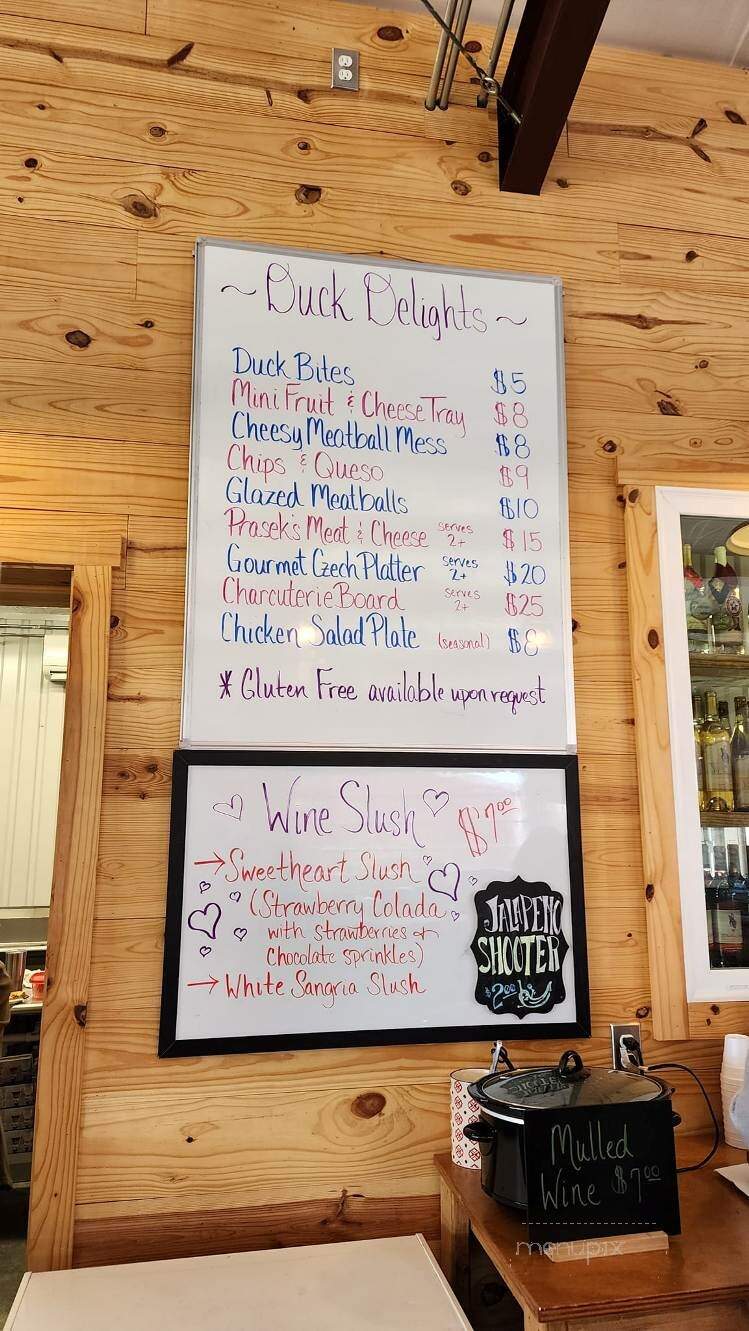 ~ Duck Delights ~
Duck Bites $5
Mini Fruit & Cheese Tray $8
Cheesy Meatball Mess $8
Chips & Queso $9
Glazed Meatballs $10
Prasek's Meat & Cheese serves 2+ $15
Gourmet Czech Platter serves 2+ $20
Charcuterie Board serves 2+ $25
Chicken Salad Plate (seasonal) $8
* Gluten Free available upon request
Wine Slush $7.00
→ Sweetheart Slush
(Strawberry Colada
with strawberries &
Chocolate sprinkles)
→ White Sangria Slush
JALAPENO
SHOOTER
$2.00
Mulled
Wine $7.00
menupix